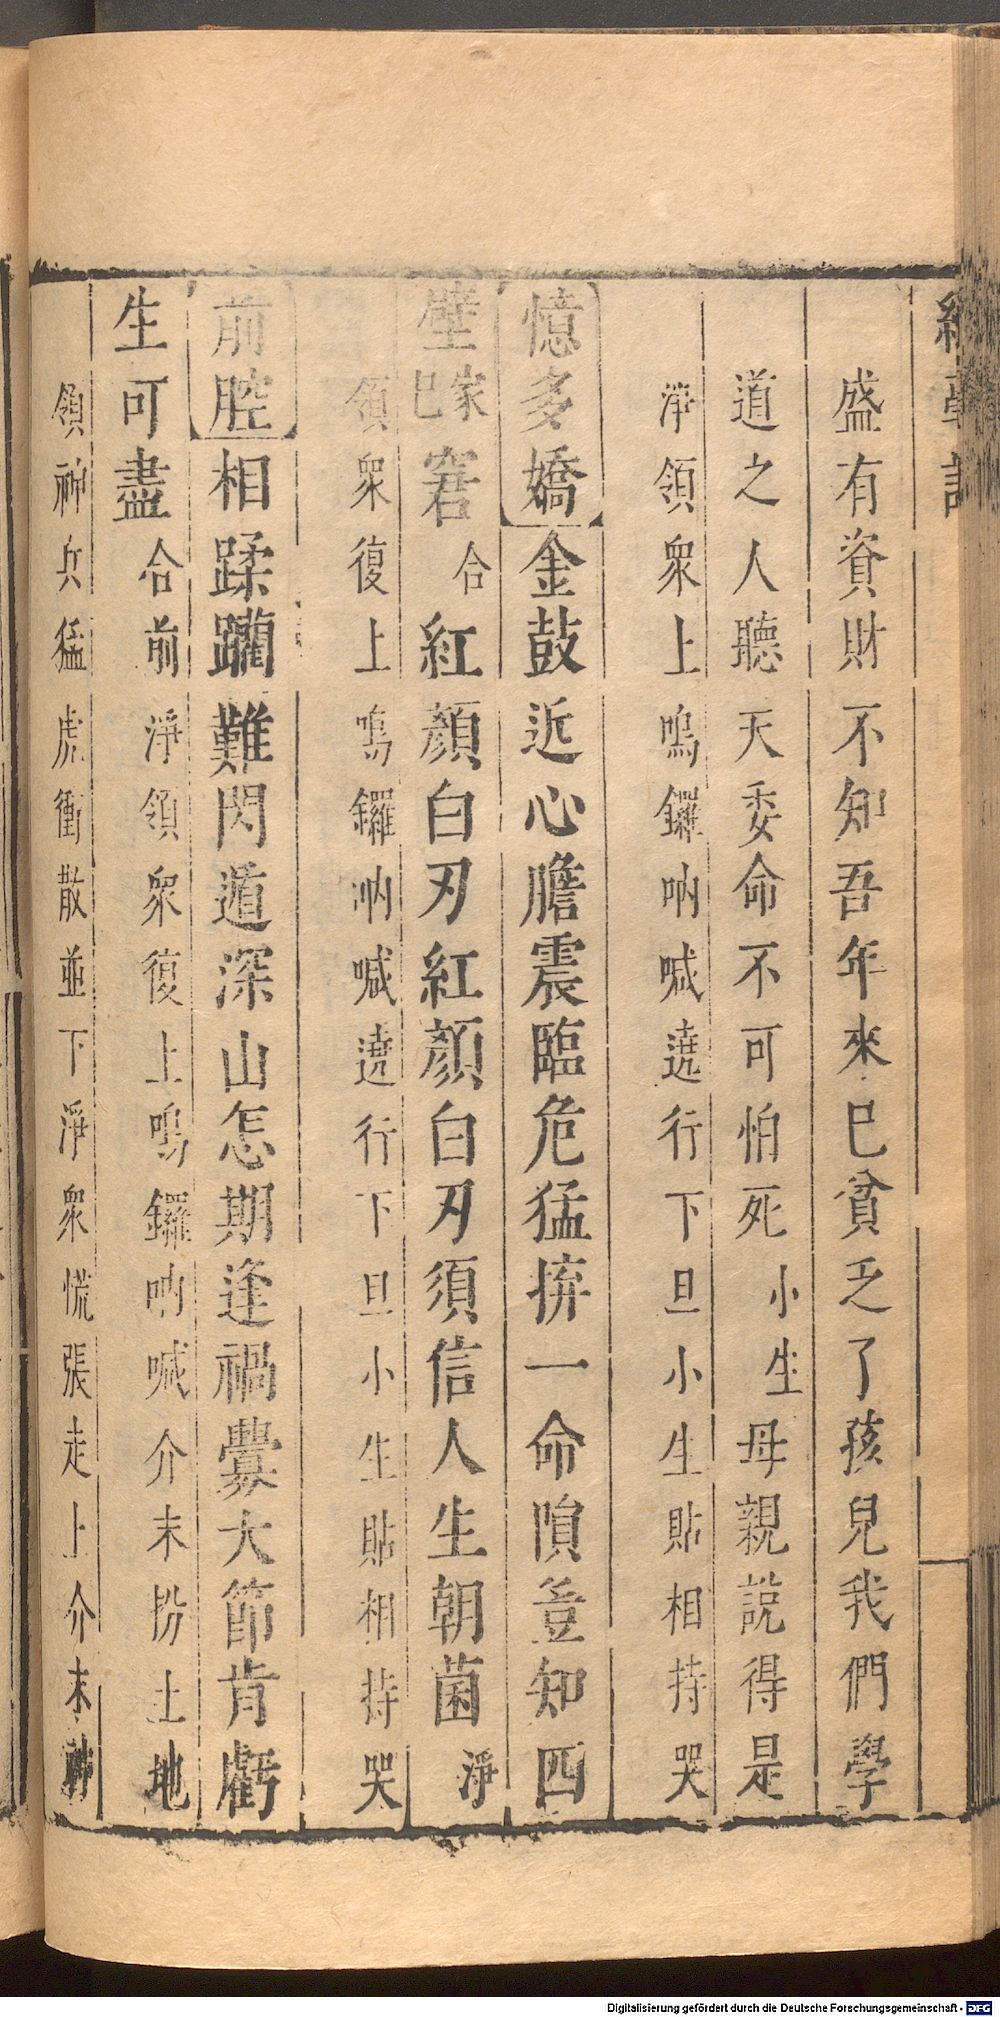 盛有資財不知吾年來已貧乏了孩兒我們學
道之人聽天委命不可怕死小生母親説得是
淨領衆上鳴鑼吶喊遶行下旦小生貼相持哭
憶多嬌金鼓近心膽震臨危猛拚一命隕豈知四
壁家巳窘合紅顏白刃紅顏白刃須信人生朝菌淨
領衆復上鳴鑼吶喊遶行下旦小生貼相持哭
前腔相蹂躪難閃遁深山怎期逢禍釁大節肯虧
生可盡合前淨領衆復上鳴鑼吶喊介末扮土地
領神兵猛虎衝散並下淨衆慌張走上介末神
Digitalisierung gefördert durch die Deutsche Forschungsgemeinschaft - DFG